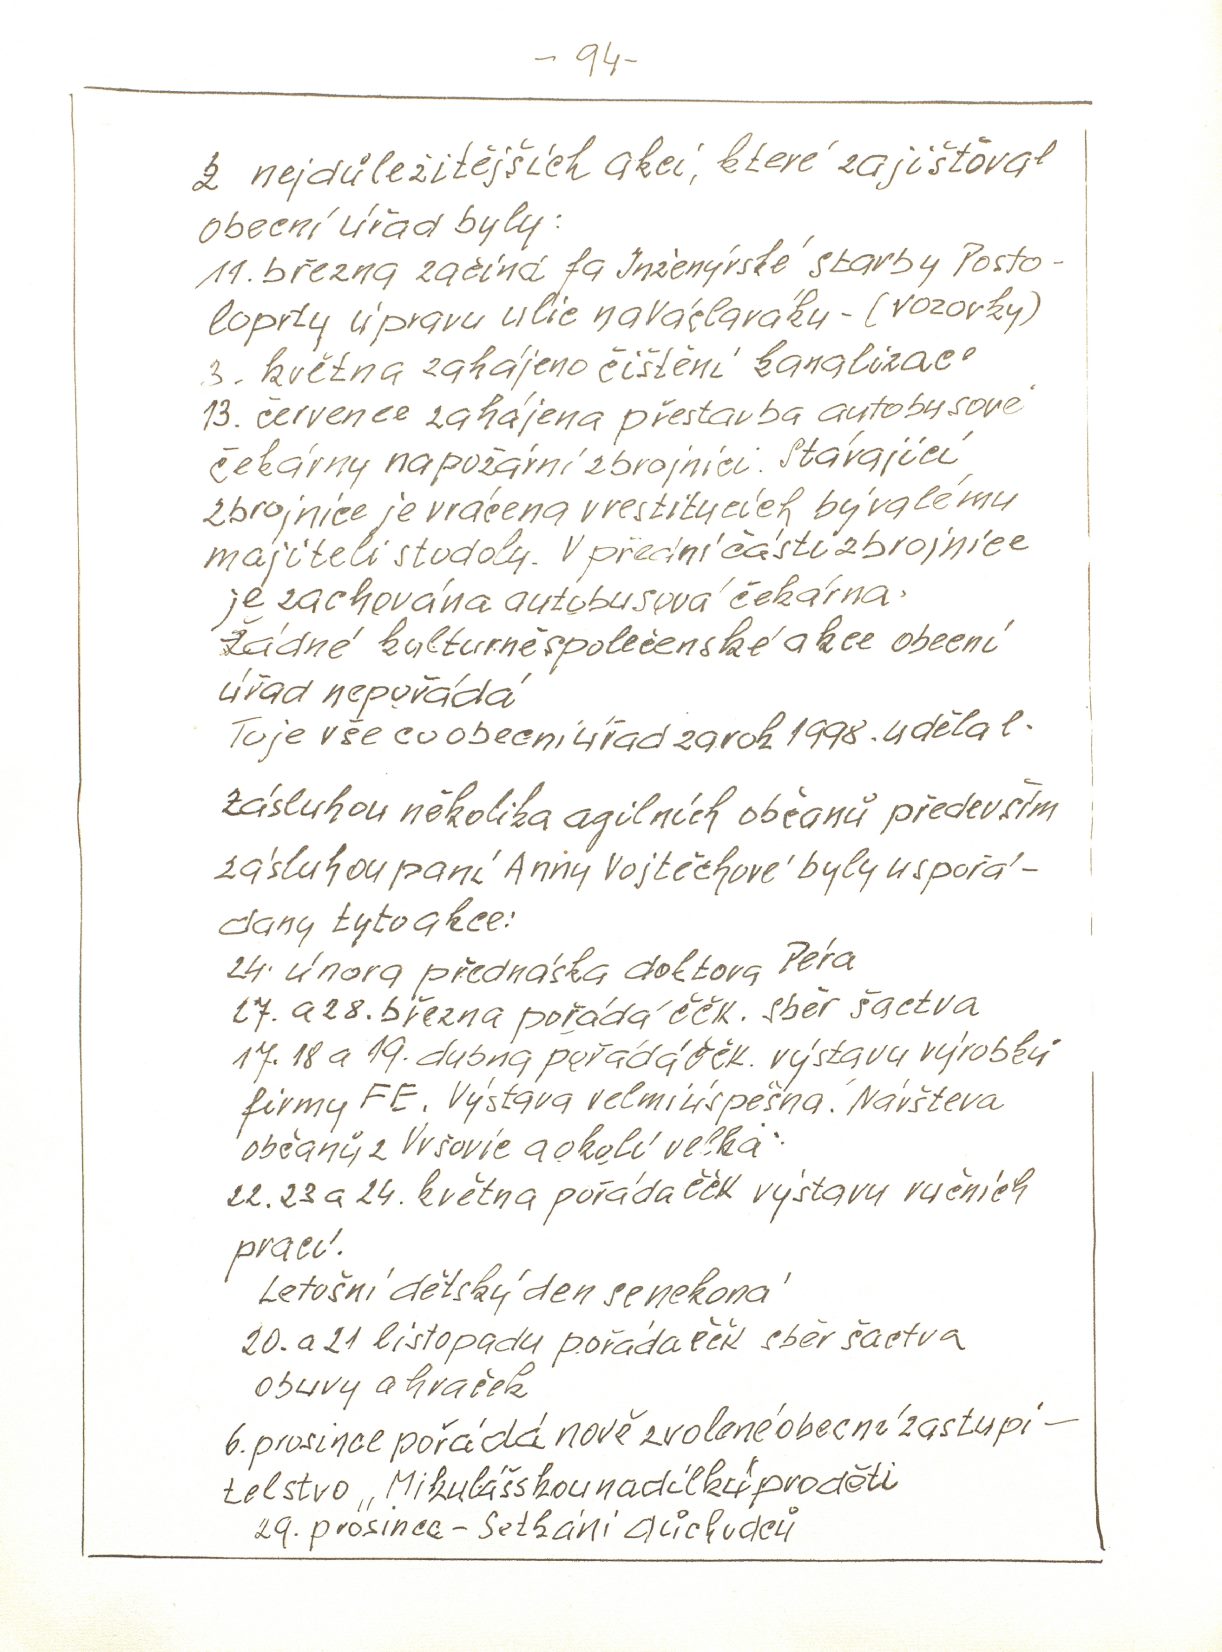 - 94 -
Z nejdůležitějších akcí, které zajištoval
obecní úřad byly:
11. března začíná fa Inženýrské stavby Posto-
loprty úpravu ulic na Václaváku - (vozovky)
3. května zahájeno čištění kanalizace
13. července zahájena přestavba autobusové
čekárny na požární zbrojnici. Stávající
zbrojnice je vrácena v restitucích bývalému
majiteli stodoly. V přední části zbrojnice
je zachována autobusová čekárna.
Žádné kulturně společenské akce obecní
úřad nepořádá
To je vše co obecní úřad za rok 1998. udělal.
Zásluhou několika agilních občanů především
zásluhou paní Anny Vojtěchové byly uspořá-
dany tyto akce:
24. února přednáška doktora Péra
27. a 28. března pořádá ČČK. sběr šactva
17. 18 a 19. dubna pořádá ČČK. výstavu výrobků
firmy FE. Výstava velmi úspěšná. Návšteva
občanů z Vršovic a okolí velká.
22. 23 a 24. května pořáda ČČK výstavu ručních
prací.
Letošní dětský den se nekoná
20. a 21 listopadu pořáda ČČK sběr šactva
obuvy a hraček
6. prosince pořádá nově zvolené obecní zastupi-
telstvo „Mikulášskou nadílku" pro děti
29. prosince - Setkání důchodců